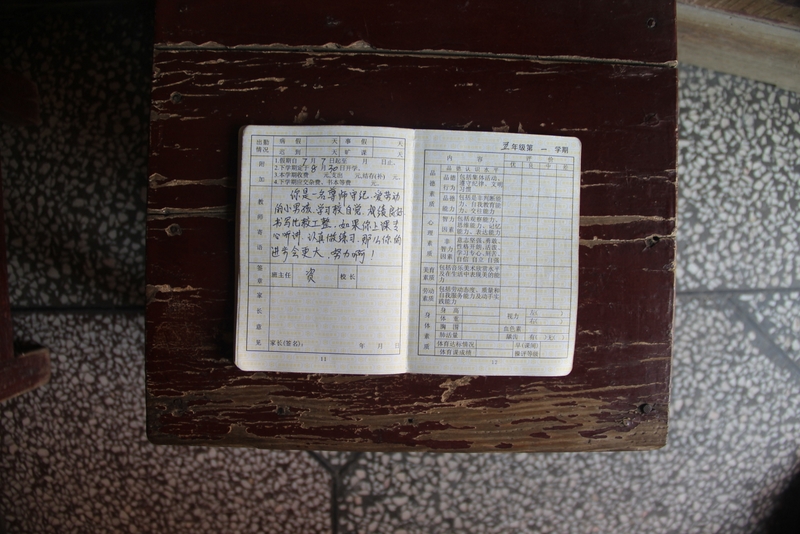 出勤情况
病假 天 事假 天
迟到 天 旷课 天
附加
1.假期自 7 月 7 日起至 月 日止。
2.下学期定于 8 月 30 日开学。
3.本学期收费 元,支出 元,结存(补) 元。
4.下学期应交杂费、书本等费 元。
教师评语
你是一名尊师守纪、爱劳动
的小男孩,学习较自觉,成绩良好
书写比较工整,如果你上课专
心听讲,认真做练习,那么你的
进步会更大,努力啊!
签章
班主任
校长
家长意见
家长(签名): 年 月 日
11
五年级第 一 学期
内容 评价
优 良 中 差
品德素质
品德认识水平
品德行为
包括集体活动、
遵守纪律、文明
习惯
心理素质
智力因素
包括观察能力、
思维能力、记忆
能力、表达能力
非智力因素
美育素质
包括音乐美术欣赏水平
及在生活中表现美的能
力
劳动素质
包括劳动态度、质量和
自我服务能力及动手实
践能力
身体素质
身高
体重
胸围
肺活量
视力
左( )
右( )
血色素
体育达标情况
体育课成绩
操评等级
12